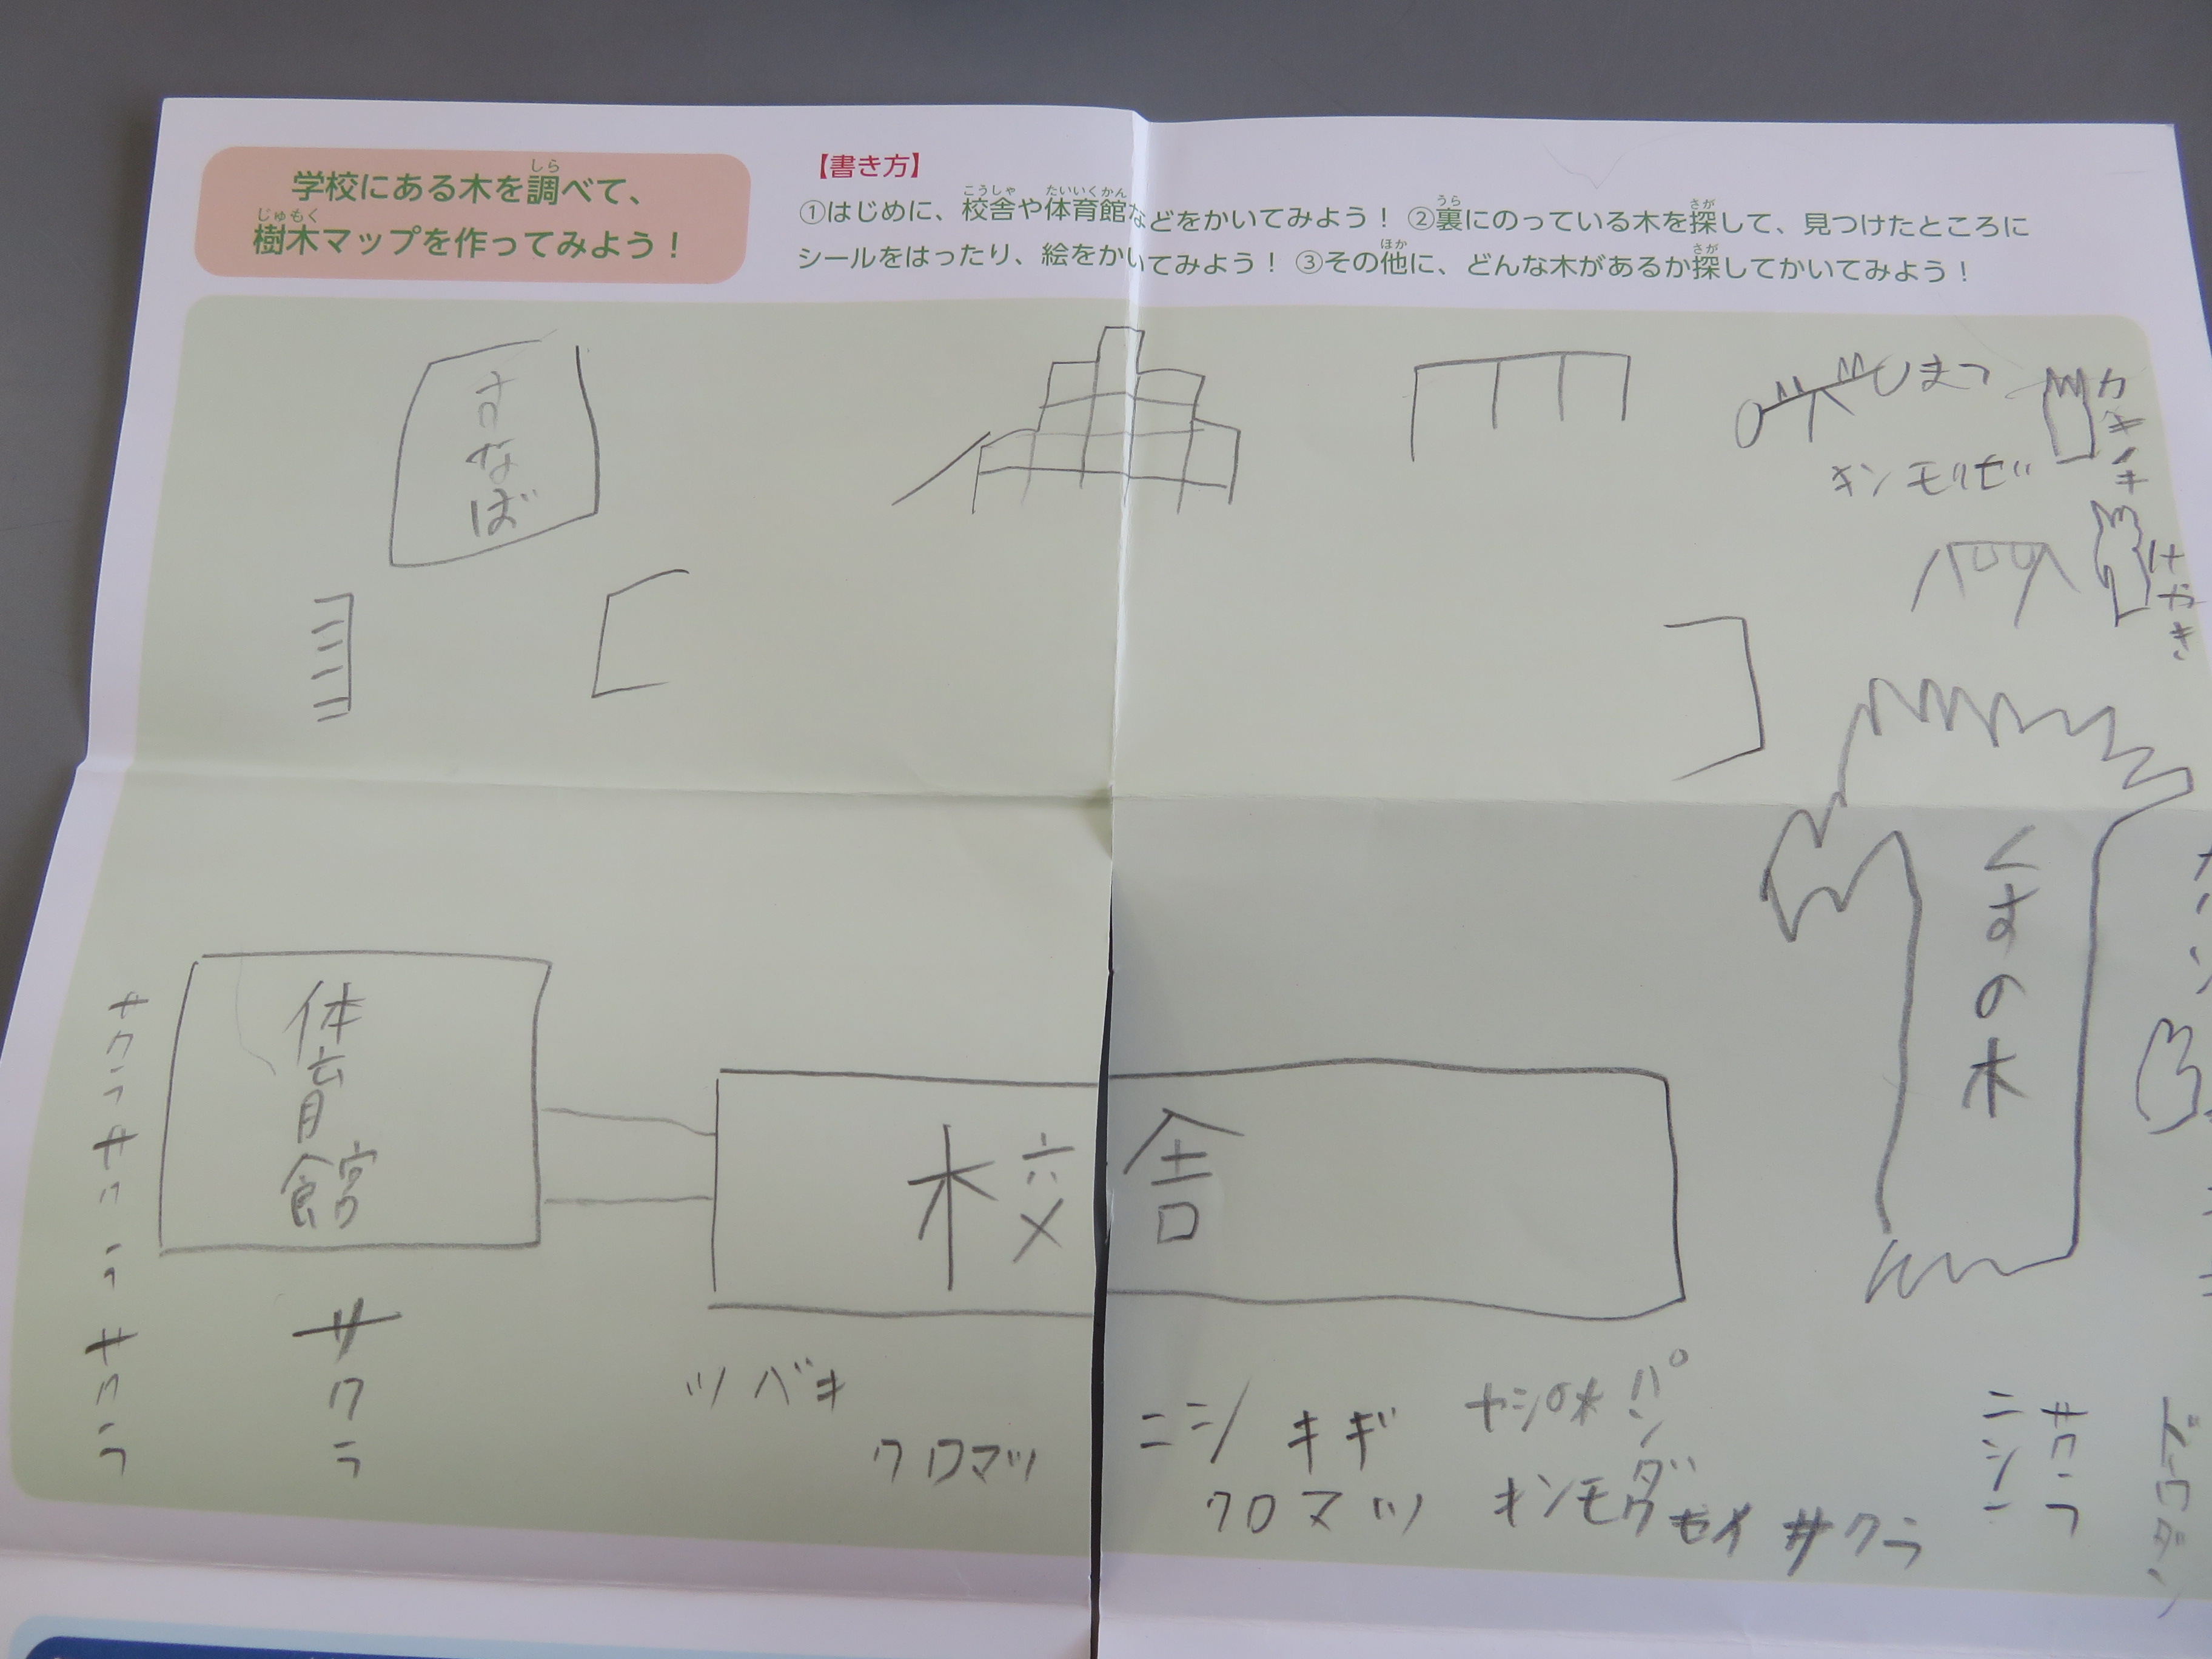 学校にある木を調べて、
樹木マップを作ってみよう！
【書き方】
①はじめに、校舎や体育館などをかいてみよう！ ②裏にのっている木を探して、見つけたところに
シールをはったり、絵をかいてみよう！ ③その他に、どんな木があるか探してかいてみよう！
さなば
しまつ
カキノキ
けやき
くすの木
体育館
校舎
サクラ
サクラ
サクラ
サクラ
ツバキ
クロマツ
ニシキギ
クロマツ
ヤシの木
キンモクセイ
サクラ
サクラ